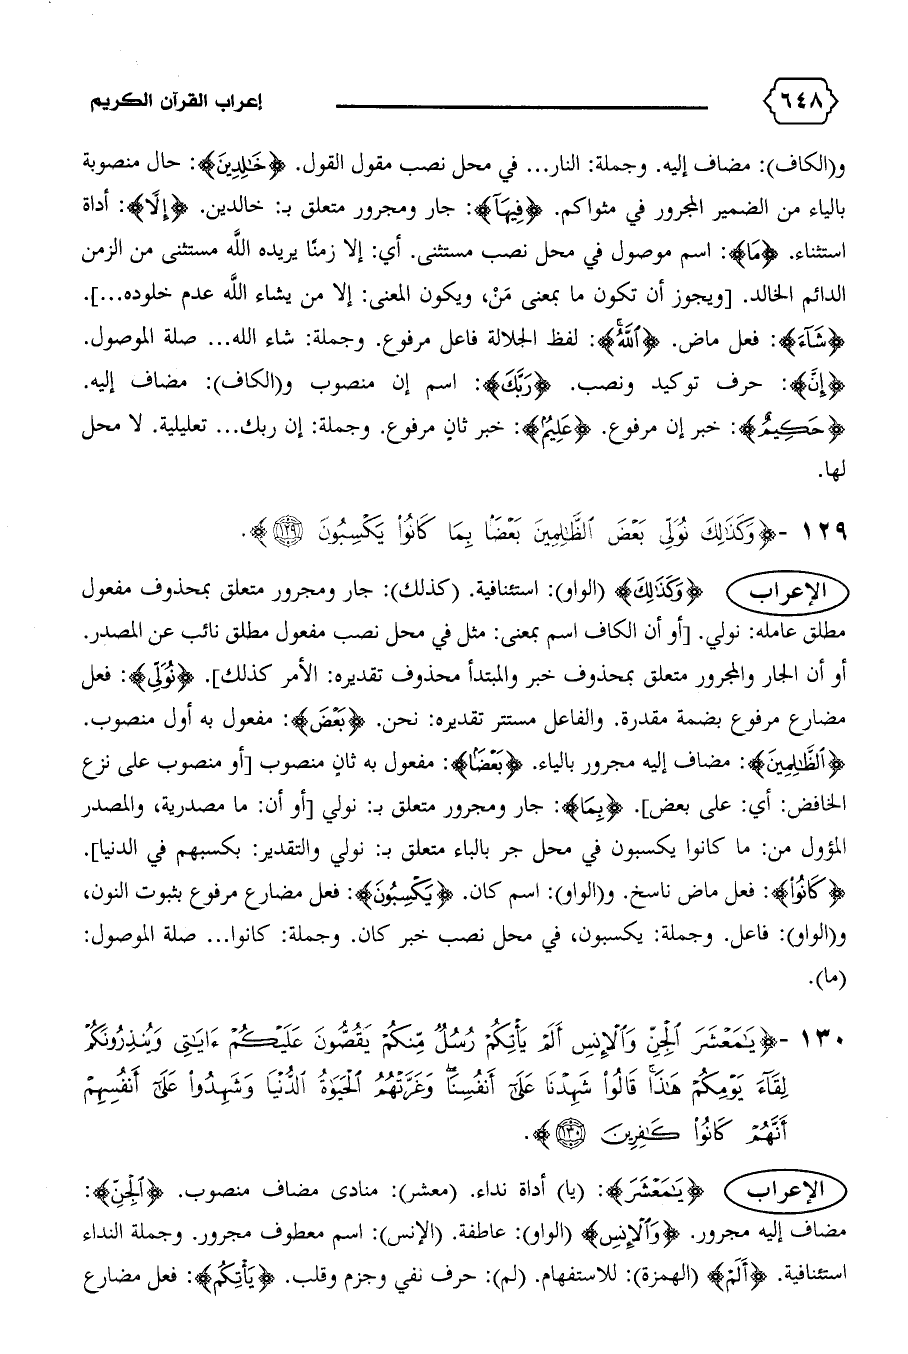 ٦٤٨ إعراب القرآن الكريم
و(الكاف): مضاف إليه. وجملة: النار... في محل نصب مقول القول. ﴿خَٰلِدِينَ﴾: حال منصوبة
بالياء من الضمير المجرور في مثواكم. ﴿فِيهَآ﴾: جار ومجرور متعلق بـ: خالدين. ﴿إِلَّا﴾: أداة
استثناء. ﴿مَا﴾: اسم موصول في محل نصب مستثنى. أي: إلا زمنًا يريده اللَّه مستثنى من الزمن
الدائم الخالد. [ويجوز أن تكون ما بمعنى مَنْ، ويكون المعنى: إلا من يشاء اللَّه عدم خلوده...].
﴿شَآءَ﴾: فعل ماض. ﴿ٱللَّهُۚ﴾: لفظ الجلالة فاعل مرفوع. وجملة: شاء الله... صلة الموصول.
﴿إِنَّ﴾: حرف توكيد ونصب. ﴿رَبَّكَ﴾: اسم إن منصوب و(الكاف): مضاف إليه.
﴿حَكِيمٌ﴾: خبر إن مرفوع. ﴿عَلِيمٌ﴾: خبر ثانٍ مرفوع. وجملة: إن ربك... تعليلية. لا محل
لها.
١٢٩ -﴿وَكَذَٰلِكَ نُوَلِّي بَعْضَ ٱلظَّٰلِمِينَ بَعْضًۢا بِمَا كَانُوا۟ يَكْسِبُونَ ١٢٩﴾.
الإعراب ﴿وَكَذَٰلِكَ﴾ (الواو): استئنافية. (كذلك): جار ومجرور متعلق بمحذوف مفعول
مطلق عامله: نولي. [أو أن الكاف اسم بمعنى: مثل في محل نصب مفعول مطلق نائب عن المصدر.
أو أن الجار والمجرور متعلق بمحذوف خبر والمبتدأ محذوف تقديره: الأمر كذلك]. ﴿نُوَلِّي﴾: فعل
مضارع مرفوع بضمة مقدرة. والفاعل مستتر تقديره: نحن. ﴿بَعْضَ﴾: مفعول به أول منصوب.
﴿ٱلظَّٰلِمِينَ﴾: مضاف إليه مجرور بالياء. ﴿بَعْضًۢا﴾: مفعول به ثانٍ منصوب [أو منصوب على نزع
الخافض: أي: على بعض]. ﴿بِمَا﴾: جار ومجرور متعلق بـ: نولي [أو أن: ما مصدرية، والمصدر
المؤول من: ما كانوا يكسبون في محل جر بالباء متعلق بـ: نولي والتقدير: بكسبهم في الدنيا].
﴿كَانُوا۟﴾: فعل ماض ناسخ. و(الواو): اسم كان. ﴿يَكْسِبُونَ﴾: فعل مضارع مرفوع بثبوت النون،
و(الواو): فاعل. وجملة: يكسبون، في محل نصب خبر كان. وجملة: كانوا... صلة الموصول:
(ما).
١٣٠ -﴿يَٰمَعْشَرَ ٱلْجِنِّ وَٱلْإِنسِ أَلَمْ يَأْتِكُمْ رُسُلٌ مِّنكُمْ يَقُصُّونَ عَلَيْكُمْ ءَايَٰتِي وَيُنذِرُونَكُمْ
لِقَآءَ يَوْمِكُمْ هَٰذَاۚ قَالُوا۟ شَهِدْنَا عَلَىٰٓ أَنفُسِنَاۖ وَغَرَّتْهُمُ ٱلْحَيَوٰةُ ٱلدُّنْيَا وَشَهِدُوا۟ عَلَىٰٓ أَنفُسِهِمْ
أَنَّهُمْ كَانُوا۟ كَٰفِرِينَ ١٣٠﴾.
الإعراب ﴿يَٰمَعْشَرَ﴾: (يا) أداة نداء. (معشر): منادى مضاف منصوب. ﴿ٱلْجِنِّ﴾:
مضاف إليه مجرور. ﴿وَٱلْإِنسِ﴾ (الواو): عاطفة. (الإنس): اسم معطوف مجرور. وجملة النداء
استئنافية. ﴿أَلَمْ﴾ (الهمزة): للاستفهام. (لم): حرف نفي وجزم وقلب. ﴿يَأْتِكُمْ﴾: فعل مضارع